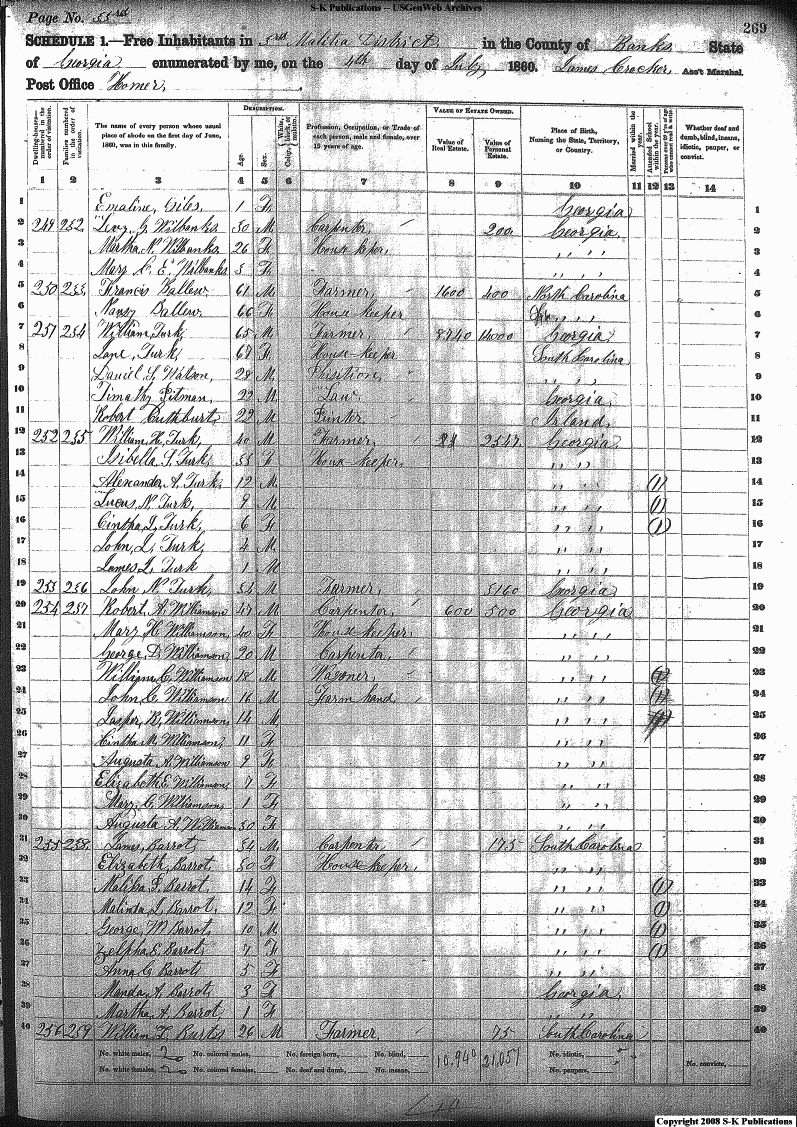 S-K Publications – USGenWeb Archives
Page No. 33rd
269
SCHEDULE 1.—Free Inhabitants in 3rd Malitia District in the County of Banks State
of Georgia enumerated by me, on the 4th day of July 1860. James Crocker Ass't Marshal.
Post Office Homer,
DESCRIPTION. VALUE OF ESTATE OWNED.
Dwelling-houses—numbered in the order of visitation. Families numbered in the order of visitation. The name of every person whose usual place of abode on the first day of June, 1860, was in this family. Age. Sex. Color, White, black, or mulatto. Profession, Occupation, or Trade of each person, male and female, over 15 years of age. Value of Real Estate. Value of Personal Estate. Place of Birth, Naming the State, Territory, or Country. Married within the year. Attended School within the year. Whether deaf and dumb, blind, insane, idiotic, pauper, or convict.
1 2 3 4 5 6 7 8 9 10 11 12 13 14
1 Emaline, Giles, 1 F Georgia 1
2 249 252 Levy G Wilbanks 30 M Carpenter 200 Georgia 2
3 Martha N Wilbanks 26 F House keper, " " 3
4 Mary C. E. Wilbanks 3 F " " 4
5 250 253 Francis Ballew 61 M Farmer 1600 400 North Carolina 5
6 Nancy Ballew 66 F House keeper " " 6
7 251 254 William, Turk, 65 M Farmer, 14000 Georgia 7
8 Jane, Turk, 67 F House keeper South Carolina 8
9 Daniel S, Watson, 28 M " " 9
10 Timathy Pitman, 22 M Law Georgia 10
11 Robert 22 M Irland, 11
12 252 255 William, H, Turk, 40 M Farmer, 2547 Georgia 12
13 Isibella S, Turk, 33 F House keeper, " " 13
14 Alexander A. Turk, 12 M " " (1) 14
15 N, Turk, 9 M " " (1) 15
16 Cintha, I, Turk, 6 F " " (1) 16
17 John, L, Turk, 4 M " " 17
18 James L, Turk 1 M " " 18
19 253 256 John N. Turk, 34 M Farmer, 3160 Georgia 19
20 254 257 Robert, A. Williamson 47 M Carpenter, 600 500 Georgia 20
21 Mary H. Williamson, 40 F House keeper, " " 21
22 George, D. Williamson, 20 M Carpenter, " " 22
23 William, C. Williamson 18 M Wagoner, " " (1) 23
24 John, C. Williamson 16 M Farm hand " " (1) 24
25 Jasper, R, Williamson, 14 M " " 25
26 Cintha M. Williamson, 11 F " " 26
27 Augusta, A. Williamson 9 F " " 27
28 Elizabeth E Williamson, 7 F " " 28
29 Mary, C. Williamson, 1 F " " 29
30 Augusta A. Williamson 50 F " " 30
31 255 258 James, Barrot, 34 M Carpenter 175 South Carolina 31
32 Elizabeth, Barrot, 30 F House keeper, " " 32
33 Maliba F, Barrot, 14 F " " (1) 33
34 Malinda J, Barrot, 12 F " " (1) 34
35 George W Barrot, 10 M " " (1) 35
36 Zelpha E, Barrot, 7 F " " (1) 36
37 Anna C, Barrot, 5 F " " 37
38 Manda, A, Barrot, 3 F Georgia, 38
39 Martha, A, Barrot, 1 F " " 39
40 256 259 William, T, 26 M Farmer, 75 South Carolina 40
No. white males, No. colored males, No. foreign born, No. blind, 10,940 21,057 No. idiotic,
No. white females, No. colored females, No. deaf and dumb, No. insane, No. paupers, No. convicts,
Copyright 2008 S-K Publications